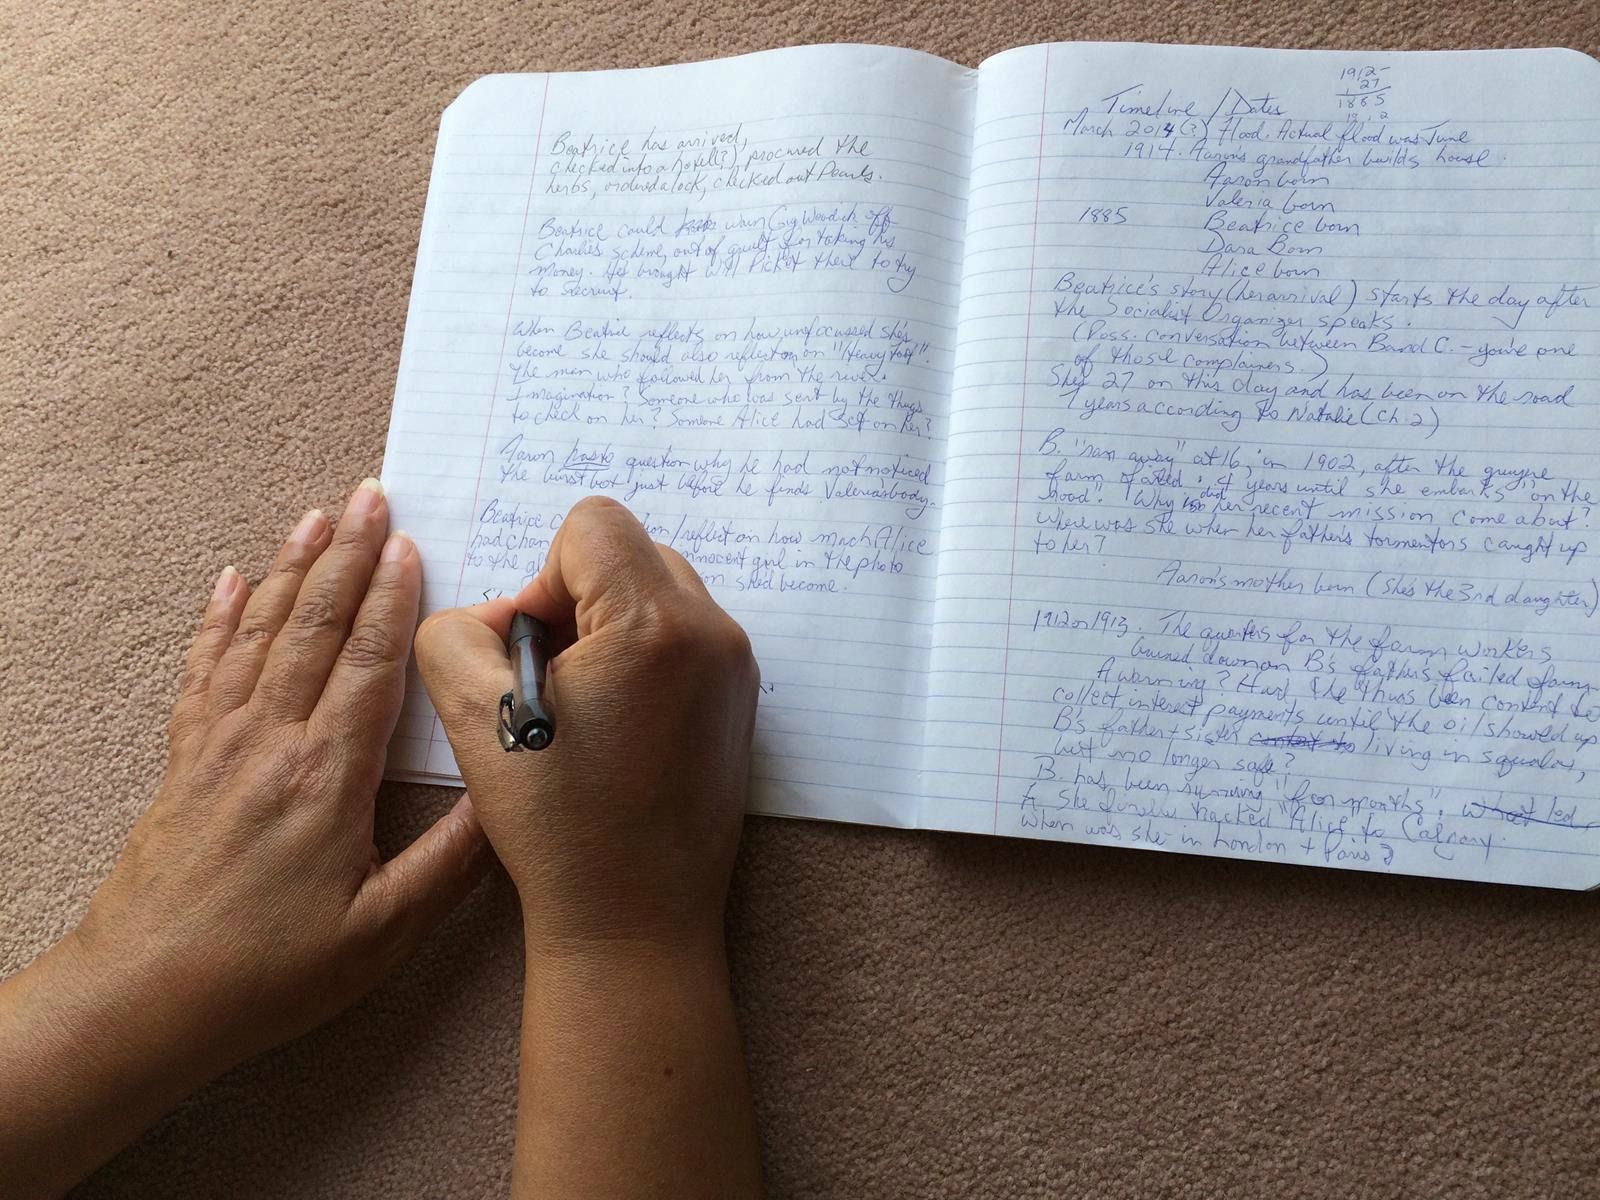 Beatrice has arrived,
checked into a hotel(?), procured the
herbs, ordered a lock, checked out Pearls.
Beatrice could warn Guy Woodich off
Charlie's scheme, out of guilt for taking his
money. He brought Wil Picket there to try
to recruit.
When Beatrice reflects on how unfocussed she's
become she should also reflect on "Heavy foot".
The man who followed her from the river.
Imagination? Someone who was sent by the thugs
to check on her? Someone Alice had set on her?
Aaron has to question why he had not noticed
the burst bot just before he finds Valeria's body.
Beatrice reflect on how much Alice
had chan innocent girl in the photo
to the gl she'd become.
1912-
27
1885
Timeline / Dates
March 2014(?) flood. Actual flood was June
1914. Aaron's grandfather builds house.
Aaron born
Valeria born
1885 Beatrice born
Dara Born
Alice born
Beatrice's story (her arrival) starts the day after
the Socialist Organizer speaks.
(Poss. conversation between B and C. - you're one
of those complainers.)
She's 27 on this day and has been on the road
7 years according to Natalie (Ch. 2)
B. "ran away" at 16, in 1902, after the
farm failed. 4 years until she embarks "on the
road". Why did her recent mission come about?
Where was she when her father's tormentors caught up
to her?
Aaron's mother born (She's the 3rd daughter)
1912 or 1913. The quarters for the farm workers
burned down on B's father's failed farm.
A warning? Had the thugs been content to
collect interest payments until the oil showed up
B's father + sister content to living in squalor,
but no longer safe?
B. has been running "for months". What led
A. She finally tracked "Alice to Calgary.
When was she in London + Paris?